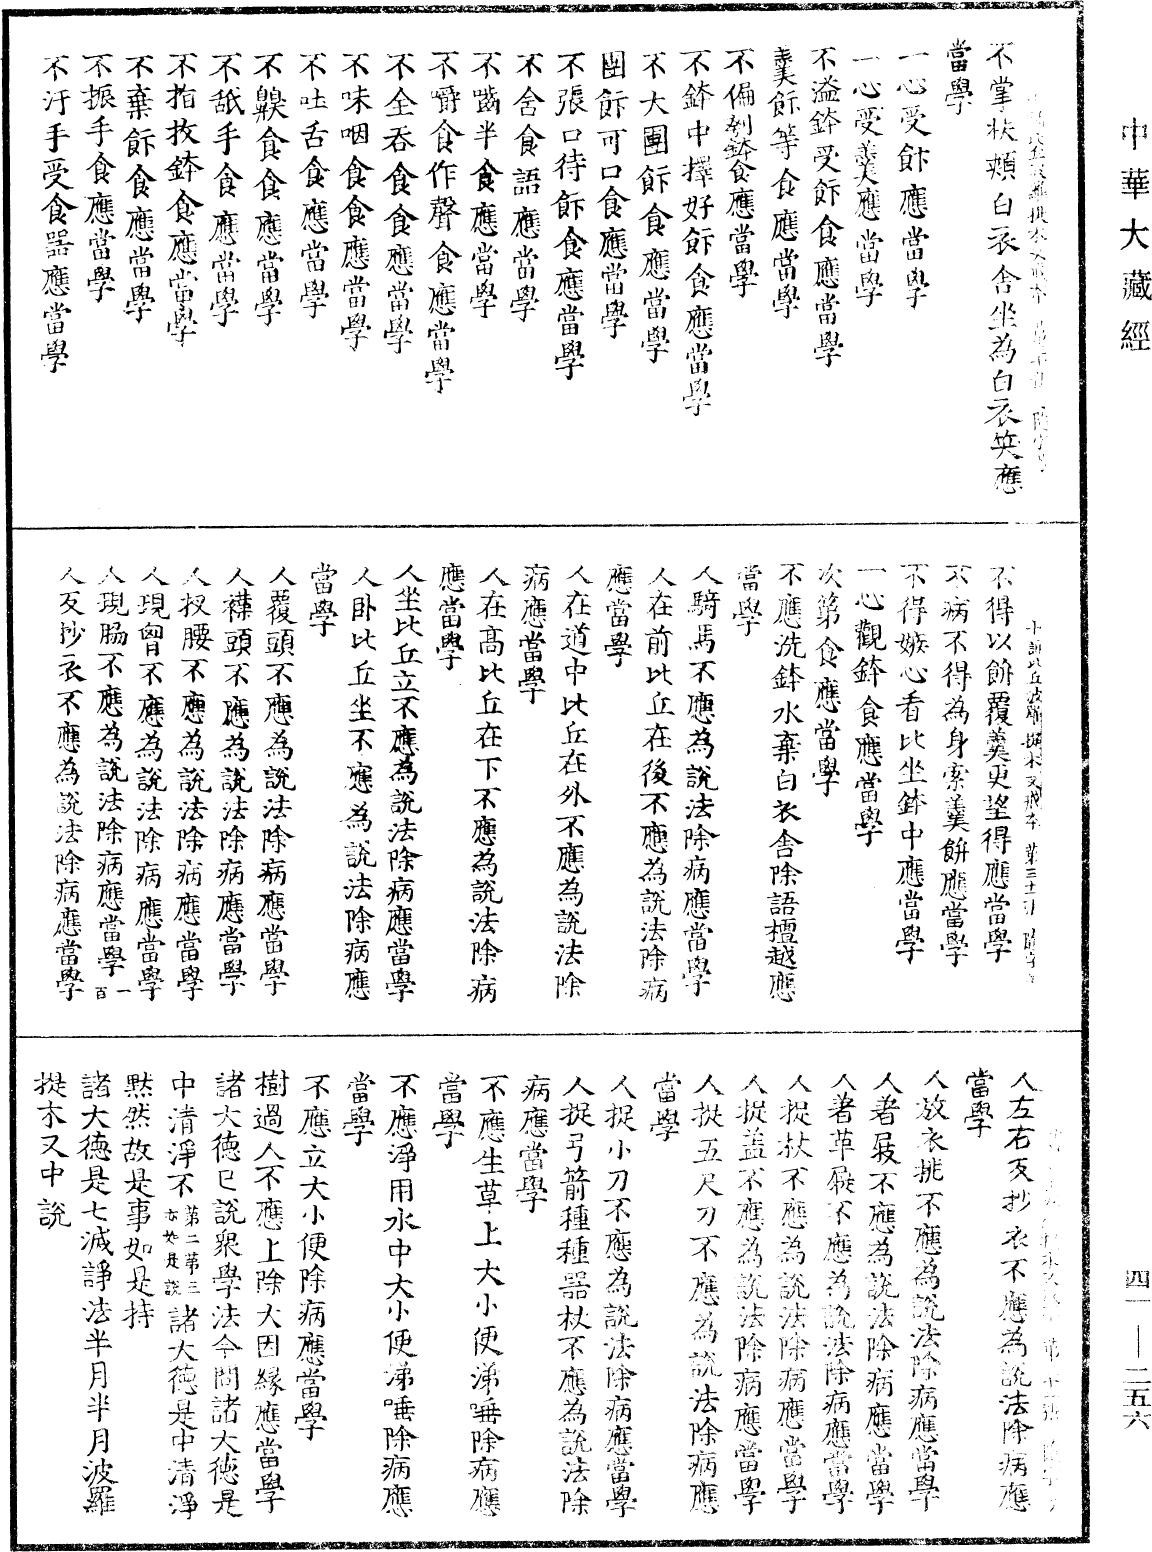 中華大藏經
不掌扶頰白衣舍坐為白衣笑應
當學
一心受飰應當學
一心受羹應當學
不溢鉢受飰食應當學
羹飰等食應當學
不偏刳鉢食應當學
不鉢中擇好飰食應當學
不大團飰食應當學
團飰可口食應當學
不張口待飰食應當學
不含食語應當學
不齧半食應當學
不嚼食作聲食應當學
不全吞食食應當學
不味咽食食應當學
不吐舌食應當學
不齅食食應當學
不舐手食應當學
不指抆鉢食應當學
不棄飰食應當學
不振手食應當學
不汙手受食器應當學
十誦比丘波羅提木叉戒本 第三十張 隨字号
不得以飰覆羹更望得應當學
不病不得為身索羹飰應當學
不得嫉心看比坐鉢中應當學
一心觀鉢食應當學
次第食應當學
不應洗鉢水棄白衣舍除語檀越應
當學
人騎馬不應為說法除病應當學
人在前比丘在後不應為說法除病
應當學
人在道中比丘在外不應為說法除
病應當學
人在高比丘在下不應為說法除病
應當學
人坐比丘立不應為說法除病應當學
人卧比丘坐不應為說法除病應
當學
人覆頭不應為說法除病應當學
人襆頭不應為說法除病應當學
人扠腰不應為說法除病應當學
人現胷不應為說法除病應當學
人現肠不應為說法除病應當學 一百
人叉抄衣不應為說法除病應當學
人左右叉抄衣不應為說法除病應
當學
人放衣挑不應為說法除病應當學
人著屐不應為說法除病應當學
人著革屣不應為說法除病應當學
人捉杖不應為說法除病應當學
人捉盖不應為說法除病應當學
人捉五尺刀不應為說法除病應
當學
人捉小刀不應為說法除病應當學
人捉弓箭種種器杖不應為說法除
病應當學
不應生草上大小便涕唾除病應
當學
不應淨用水中大小便涕唾除病應
當學
不應立大小便除病應當學
樹過人不應上除大因緣應當學
諸大德已說衆學法今問諸大德是
中清淨不 第二第三亦如是說 諸大德是中清淨
默然故是事如是持
諸大德是七滅諍法半月半月波羅
提木叉中說
四一—二五六